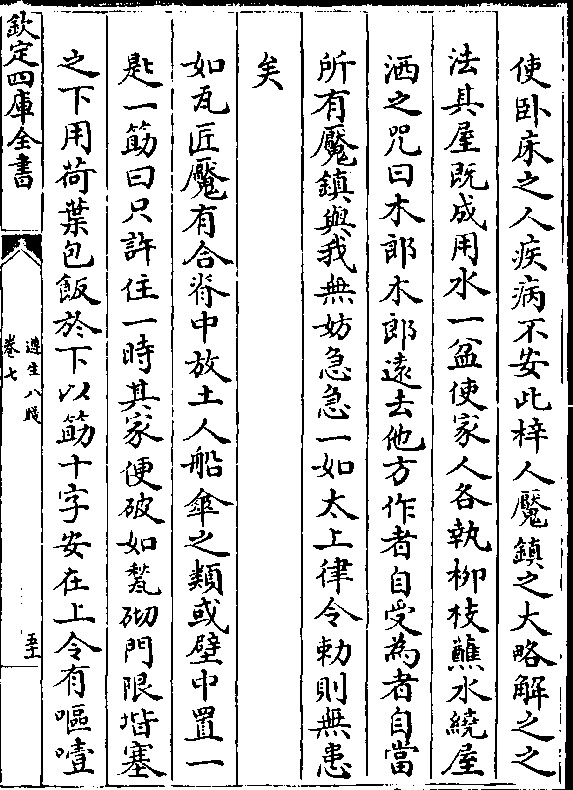 使卧床之人疾病不安此梓人魘鎮之大略解之之
法其屋既成用水一盆使家人各執柳枝蘸水繞屋
洒之咒曰木郎木郎逺去他方作者自受為者自當
所有魘鎮與我無妨急急一如太上律令勅則無患
矣
如瓦匠魘有合脊中放土人船傘之類或壁中置一
匙一筯曰只許住一時其家便破如甃砌門限堦塞
之下用荷葉包飯於下以筯十字安在上令有嘔噎
欽定四庫全書
遵生八牋
卷七